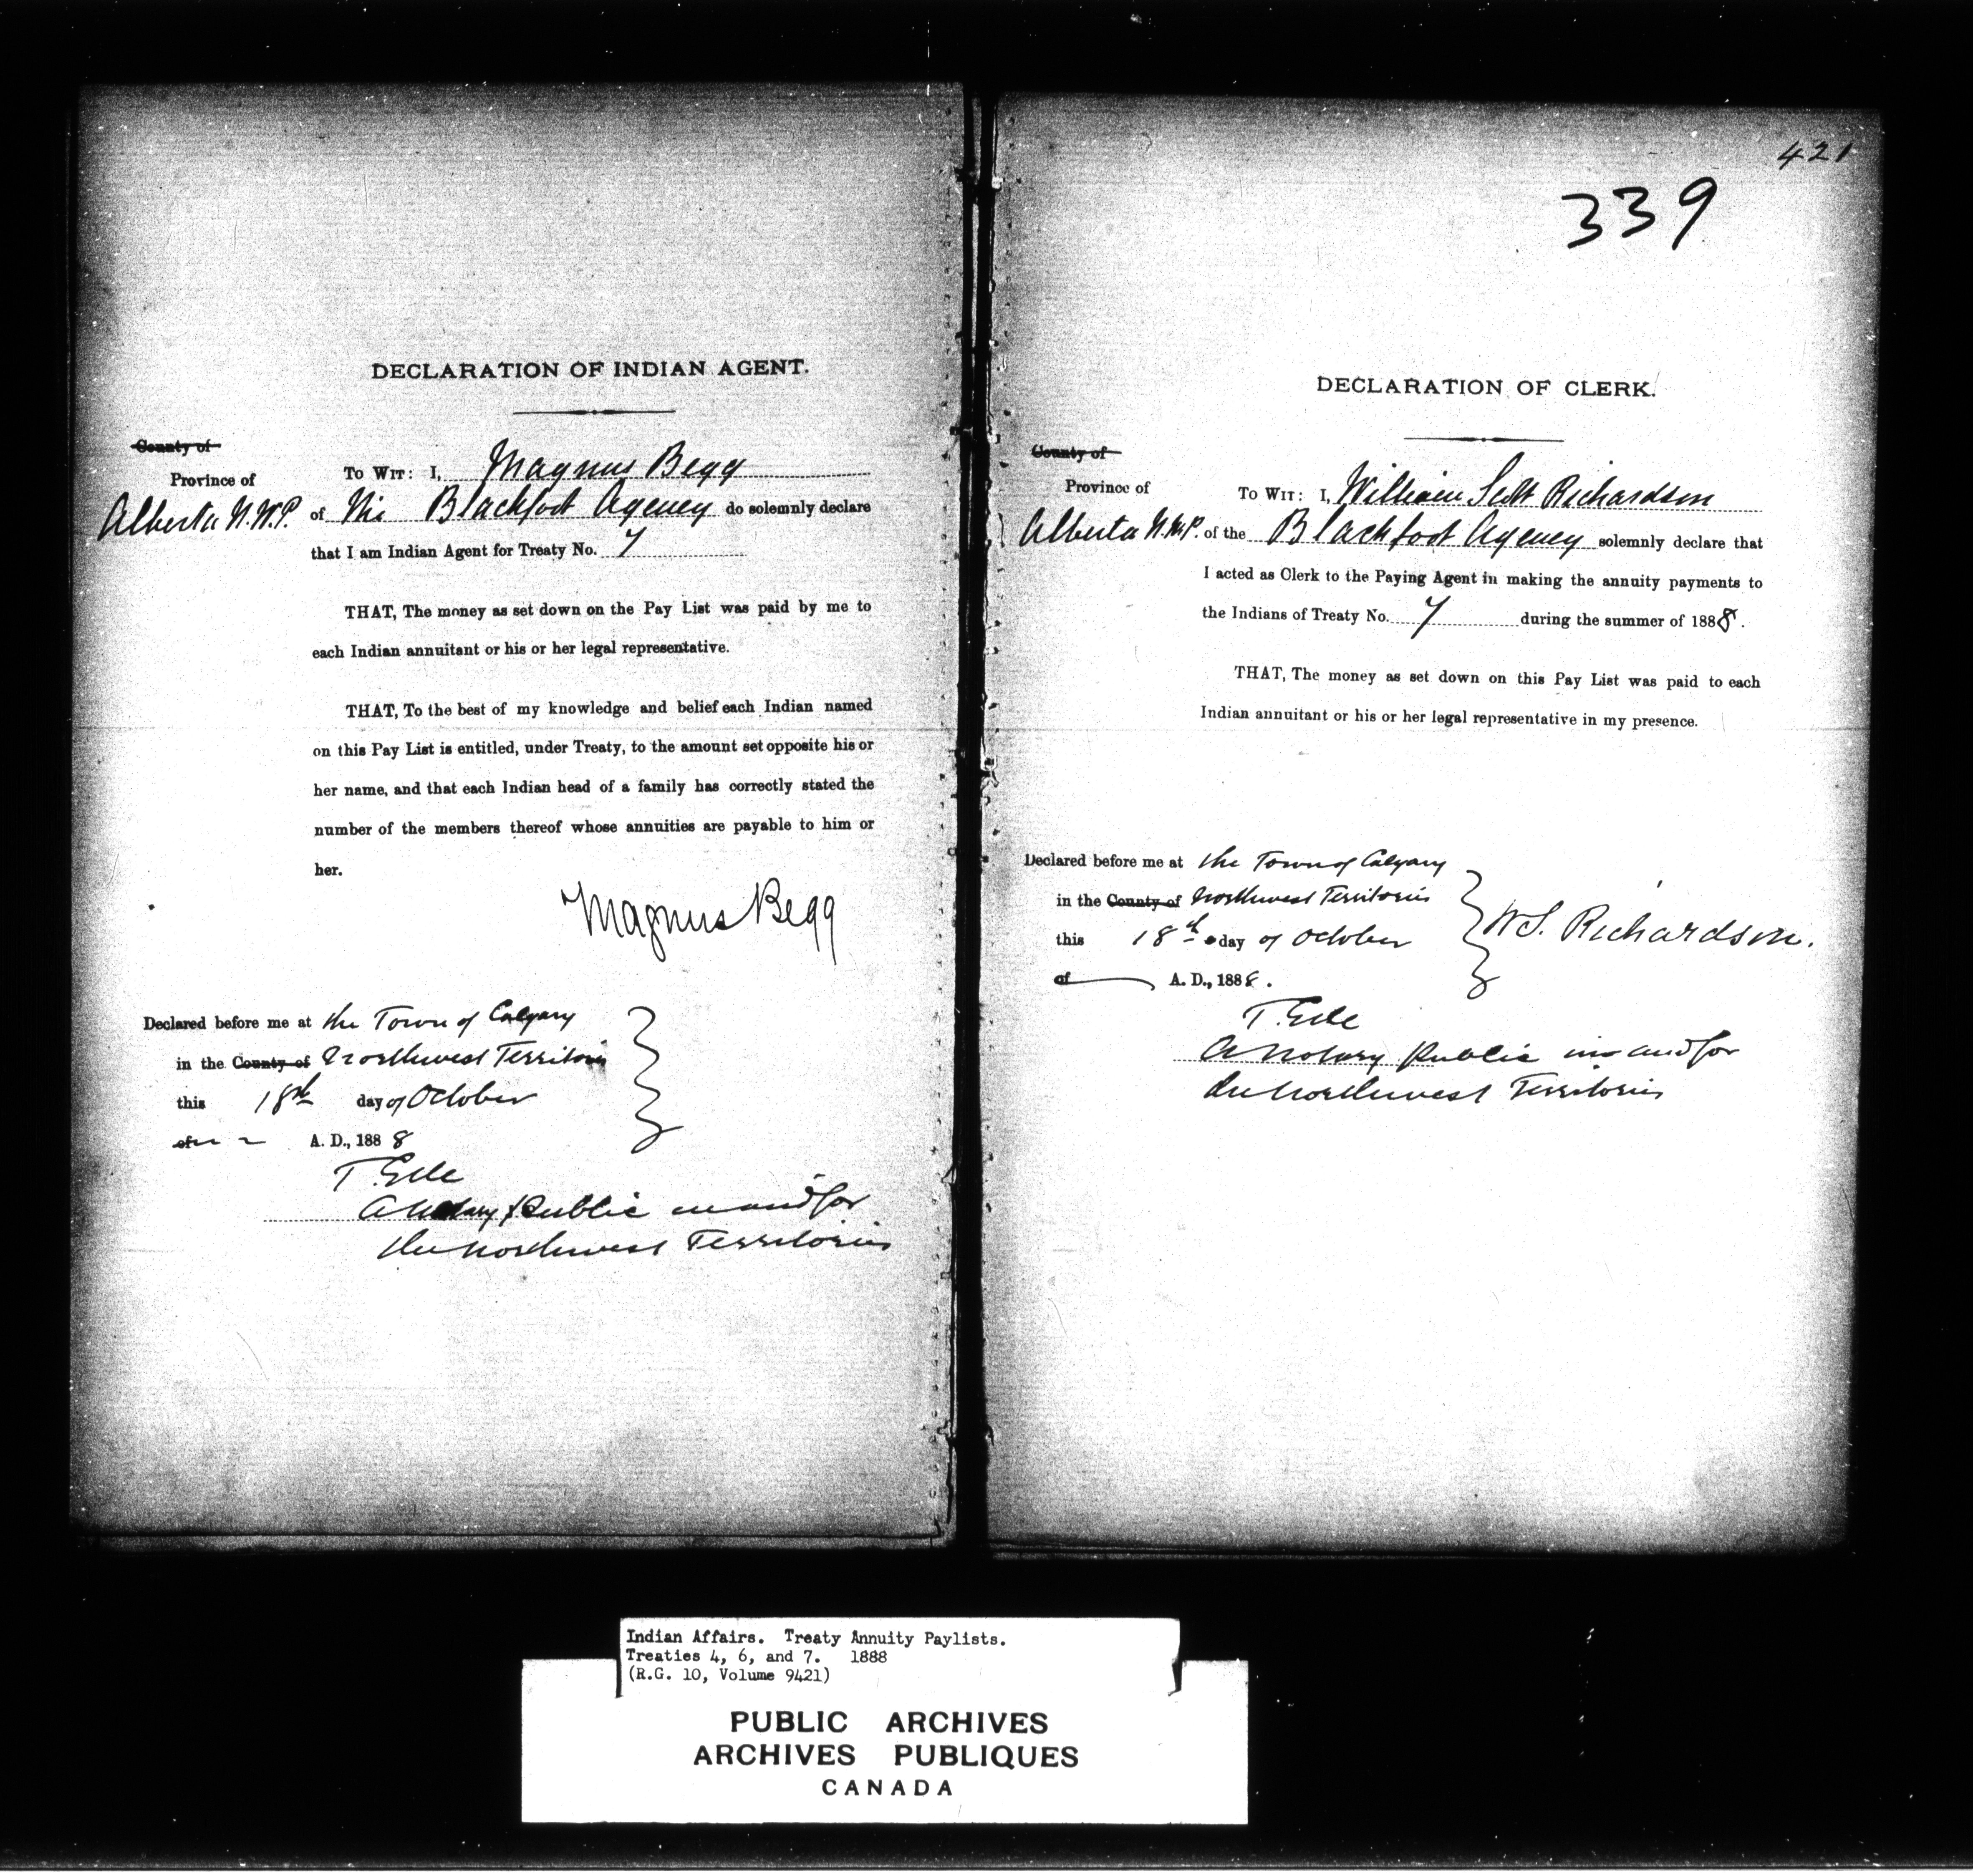 DECLARATION OF INDIAN AGENT.
County of
Province of
Alberta N.W.P.
To Wit: I, Magnus Begg
of the Blackfoot Agency do solemnly declare
that I am Indian Agent for Treaty No. 7
THAT, The money as set down on the Pay List was paid by me to
each Indian annuitant or his or her legal representative.
THAT, To the best of my knowledge and belief each Indian named
on this Pay List is entitled, under Treaty, to the amount set opposite his or
her name, and that each Indian head of a family has correctly stated the
number of the members thereof whose annuities are payable to him or
her.
Magnus Begg
Declared before me at the Town of Calgary
in the County of Northwest Territories
this 18th day of October
of A. D., 1888
T. Ede
A Notary Public in and for
the Northwest Territories
421
339
DECLARATION OF CLERK.
County of
Province of
Alberta N.W.P.
To Wit: I, William Scott Richardson
of the Blackfoot Agency solemnly declare that
I acted as Clerk to the Paying Agent in making the annuity payments to
the Indians of Treaty No. 7 during the summer of 1888.
THAT, The money as set down on this Pay List was paid to each
Indian annuitant or his or her legal representative in my presence.
Declared before me at the Town of Calgary
in the County of Northwest Territories
this 18th day of October
of A. D., 1888.
W S. Richardson.
T. Ede
A Notary Public in and for
the Northwest Territories
Indian Affairs. Treaty Annuity Paylists.
Treaties 4, 6, and 7. 1888
(R.G. 10, Volume 9421)
PUBLIC ARCHIVES
ARCHIVES PUBLIQUES
CANADA